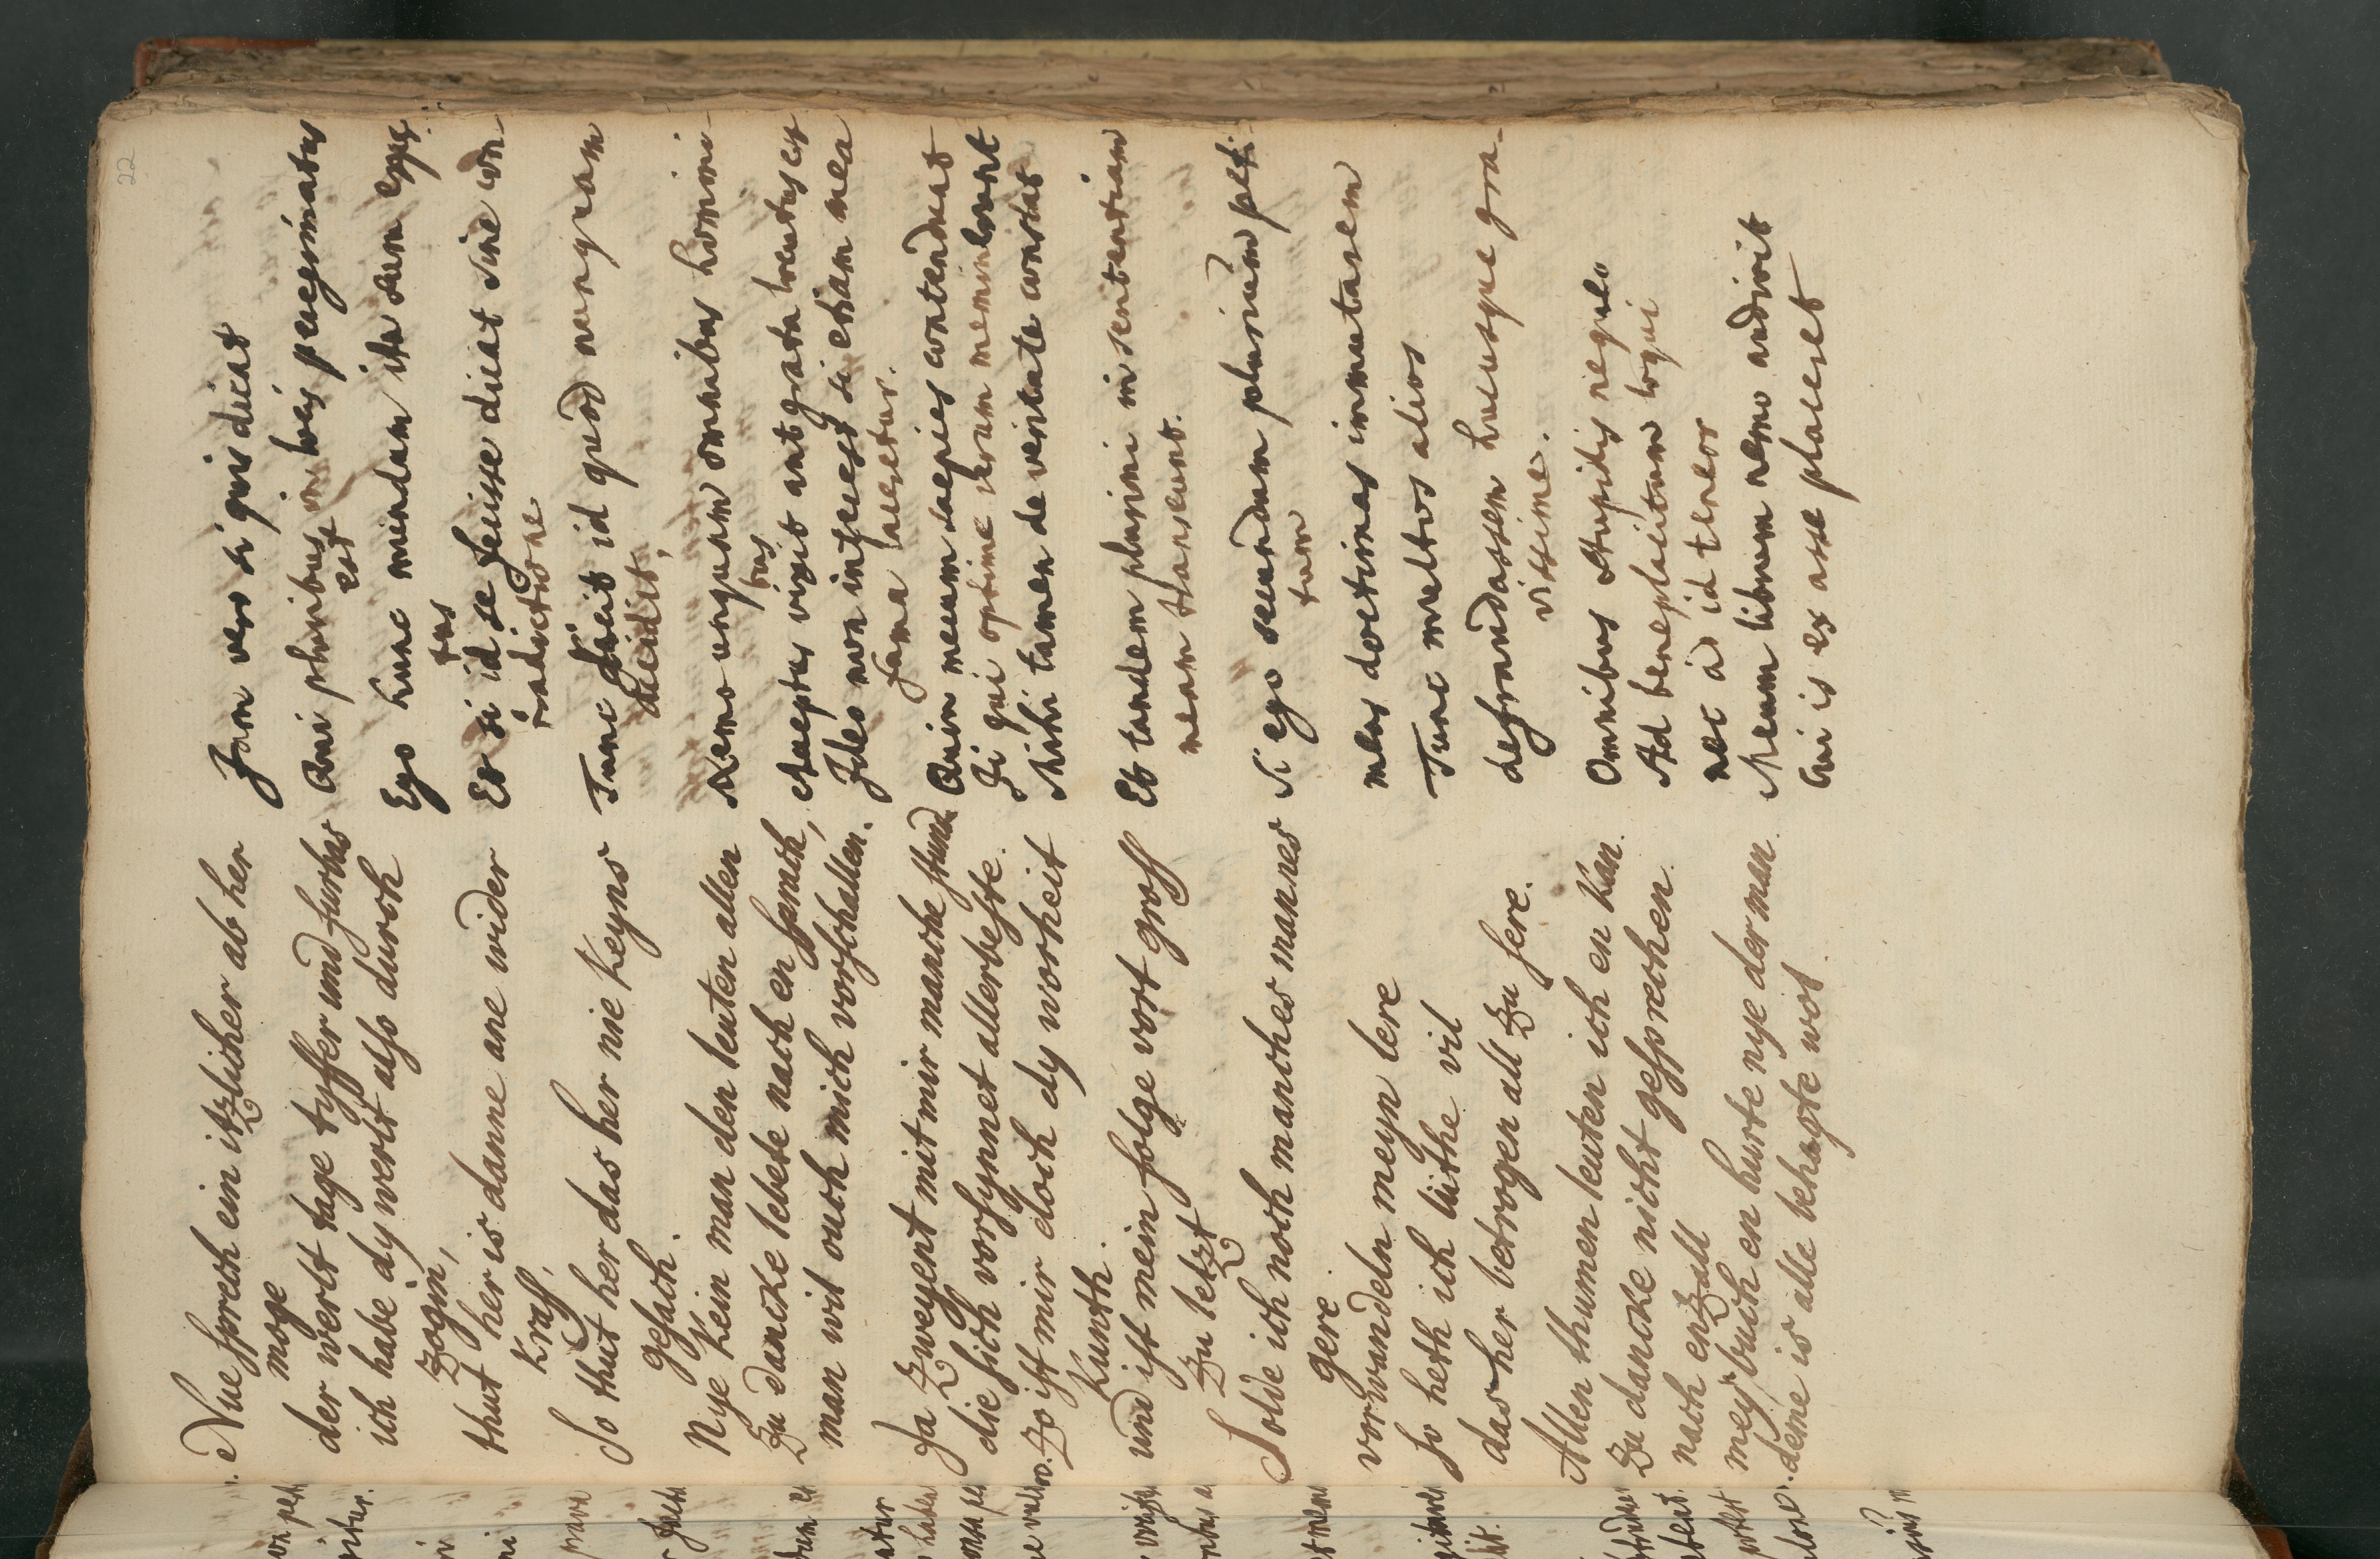 22
Nue sprech ein itzlicher ab her
moge
der werlt tage tyffer und furbas
ich habe dy werlt also durch
zogin,
thut her is danne ane wider
Kraff,
So thut her das her nie Keyns
gesach.
Nye Kein man den leuten allen
Zu dancke lebete nach en sprach,
man wil ouch mich vorschallen.
Ja zweyent mit mir manche stund
die sich vorsynnet allerbeste.
Zo ist mir doch dy worheit
Kunth.
und ist mein folge vort gross
Zu letzt
Solde ich noch manches mannes
gere
vorwandeln meyn lere
so heth ich lüthe vil
das her betrogen all zu sere.
Allen thumen leuten ich en Kan
Zu dancke nicht gesprechen
nach en zall
mey buch en hurte nye der man
deme is alle behagte wol.
Jam vero si quis dicat
Qui pluribus in locis peregrinatus
est
Ego hunc mundum ita sum egres
sus
Et si id se fecisse dicat sine con-
tradictione
Tunc fecit id quod nunquam
accidit,
Nemo unquam omnibus homini-
bus
acceptus vixit aut grata locutus est
Ideo non interest si etiam mea
fama laeserur.
Quin mecum saepius contendunt
Ii qui optime rerum meminerunt
Mihi tamen de veritate constat
Et tandem plurimi in sententiam
meam transeunt.
Si ego secundum plurium peti-
tum
meas doctrinas immutarem
Tunc multos alios
defraudassem hucusque gra-
vissime.
Omnibus stupidis nequeo
Ad beneplacitum loqui
nec ad id teneor
Meum librum nemo audivit
Cui is ex asse placeret